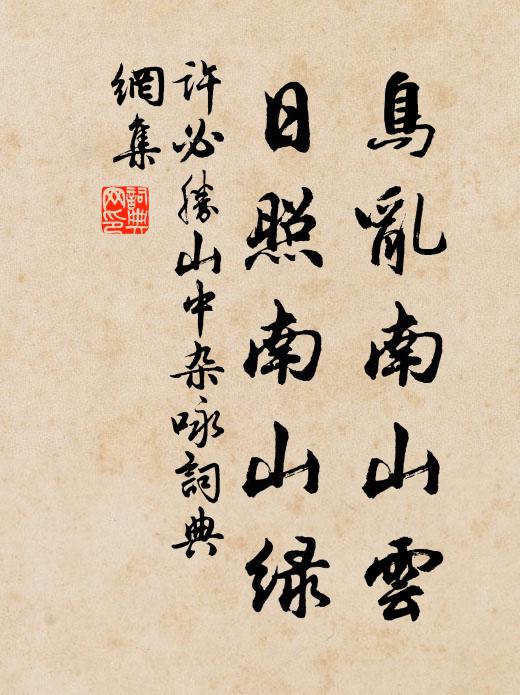 鳥亂南山雲
日照南山緑
許必勝山中杂咏詞典
網集
詞典
网印